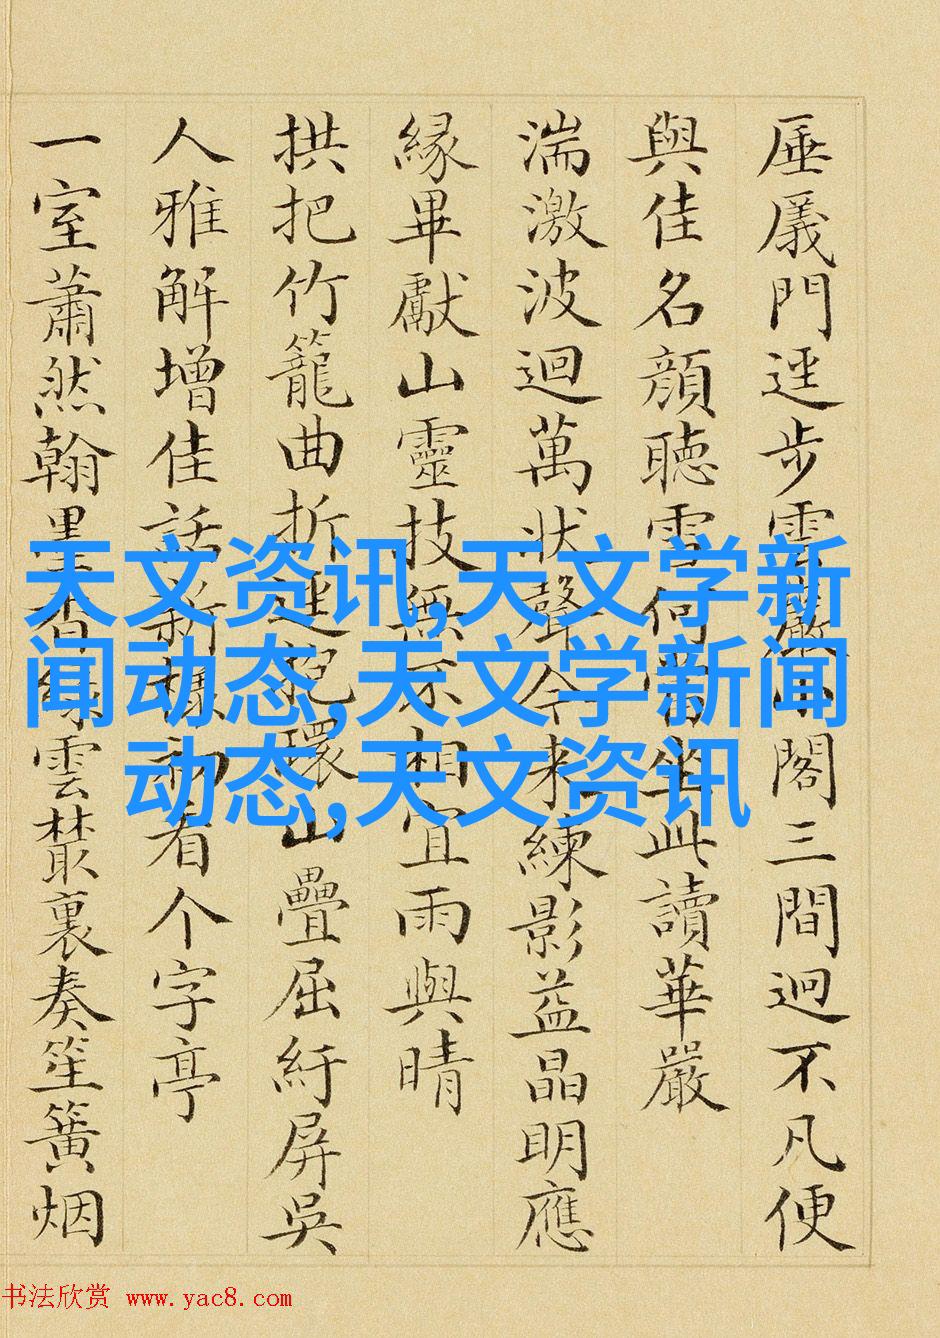 厜㕒門逕步雲巖小閣三間迥不凡便
與佳名顏聽雪何當坐此讀華嚴
湍激波迴萬狀聲今來練影益晶明應
緣畢獻山靈技無不相宜雨與晴
拱把竹籠曲折逕抱環山疊屈紆屏吳
人雅解增佳話新樣初看个字亭
一室蕭然翰墨香綠雲叢裏奏笙簧烟
天文资讯,天文学新
闻动态,天文学新闻
动态,天文资讯
书法欣赏 www.yac8.com